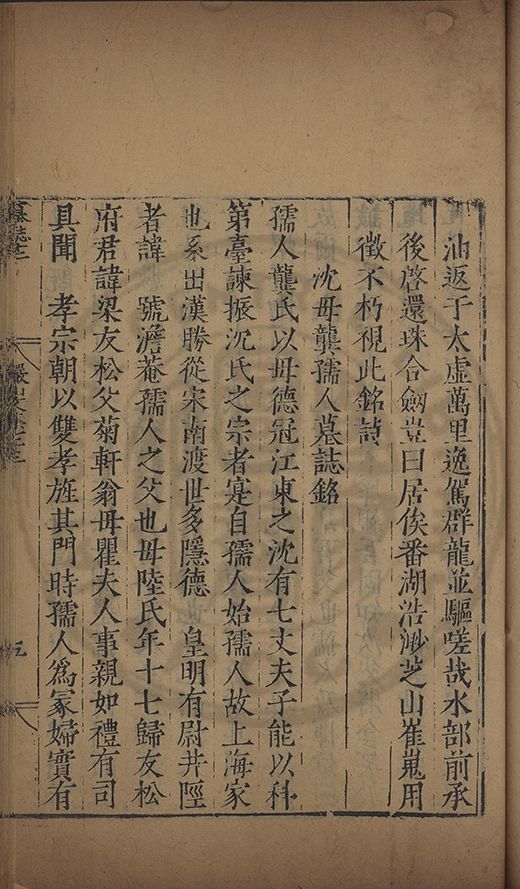 油返于太虛萬里逸駕群龍並驅嗟哉水部前承
後啓還珠合劔豈曰居俟番湖浩渺芝山崔嵬用
徵不朽視此銘詩
沈母龔孺人墓誌銘
孺人龔氏以母德冠江東之沈有七丈夫子能以科
第臺諫振沈氏之宗者寔自孺人始孺人故上海家
也系出漢勝從宋南渡世多隱德 皇明有尉井陘
者諱 號澹菴孺人之父也母陸氏年十七歸友松
府君諱梁友松父菊軒翁母瞿夫人事親如禮有司
具聞 孝宗朝以雙孝旌其門時孺人爲冡婦實有
墓誌
五